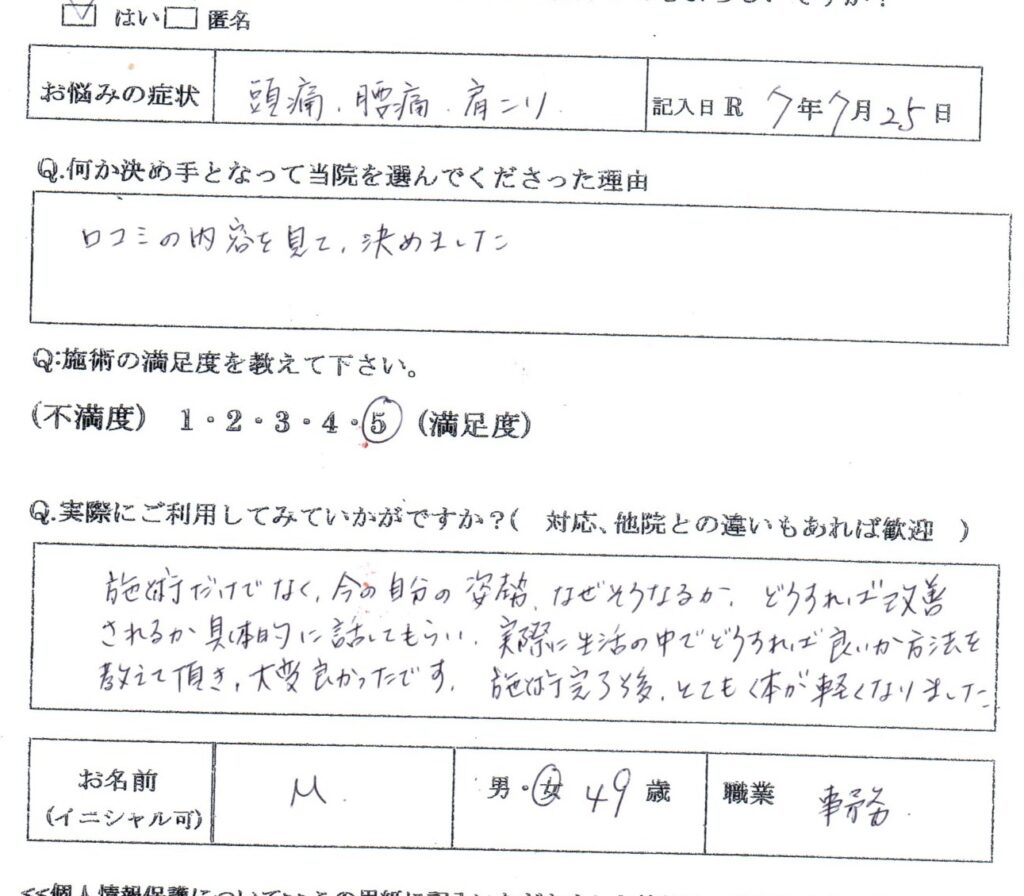 はい 匿名
お悩みの症状 頭痛、腰痛、肩コリ 記入日 R 7年7月25日
Q.何か決め手となって当院を選んでくださった理由
口コミの内容を見て、決めました
Q:施術の満足度を教えて下さい。
(不満度) 1・2・3・4・5 (満足度)
Q.実際にご利用してみていかがですか?( 対応、他院との違いもあれば歓迎 )
施術だけでなく、今の自分の姿勢、なぜそうなるか、どうすれば改善
されるか具体的に話してもらい、実際に生活の中でどうすれば良いか方法を
教えて頂き、大変良かったです。施術完了後、とてもく体が軽くなりました
お名前 M. 男・女 49歳 職業 事務
(イニシャル可)
<<個人情報保護について>>